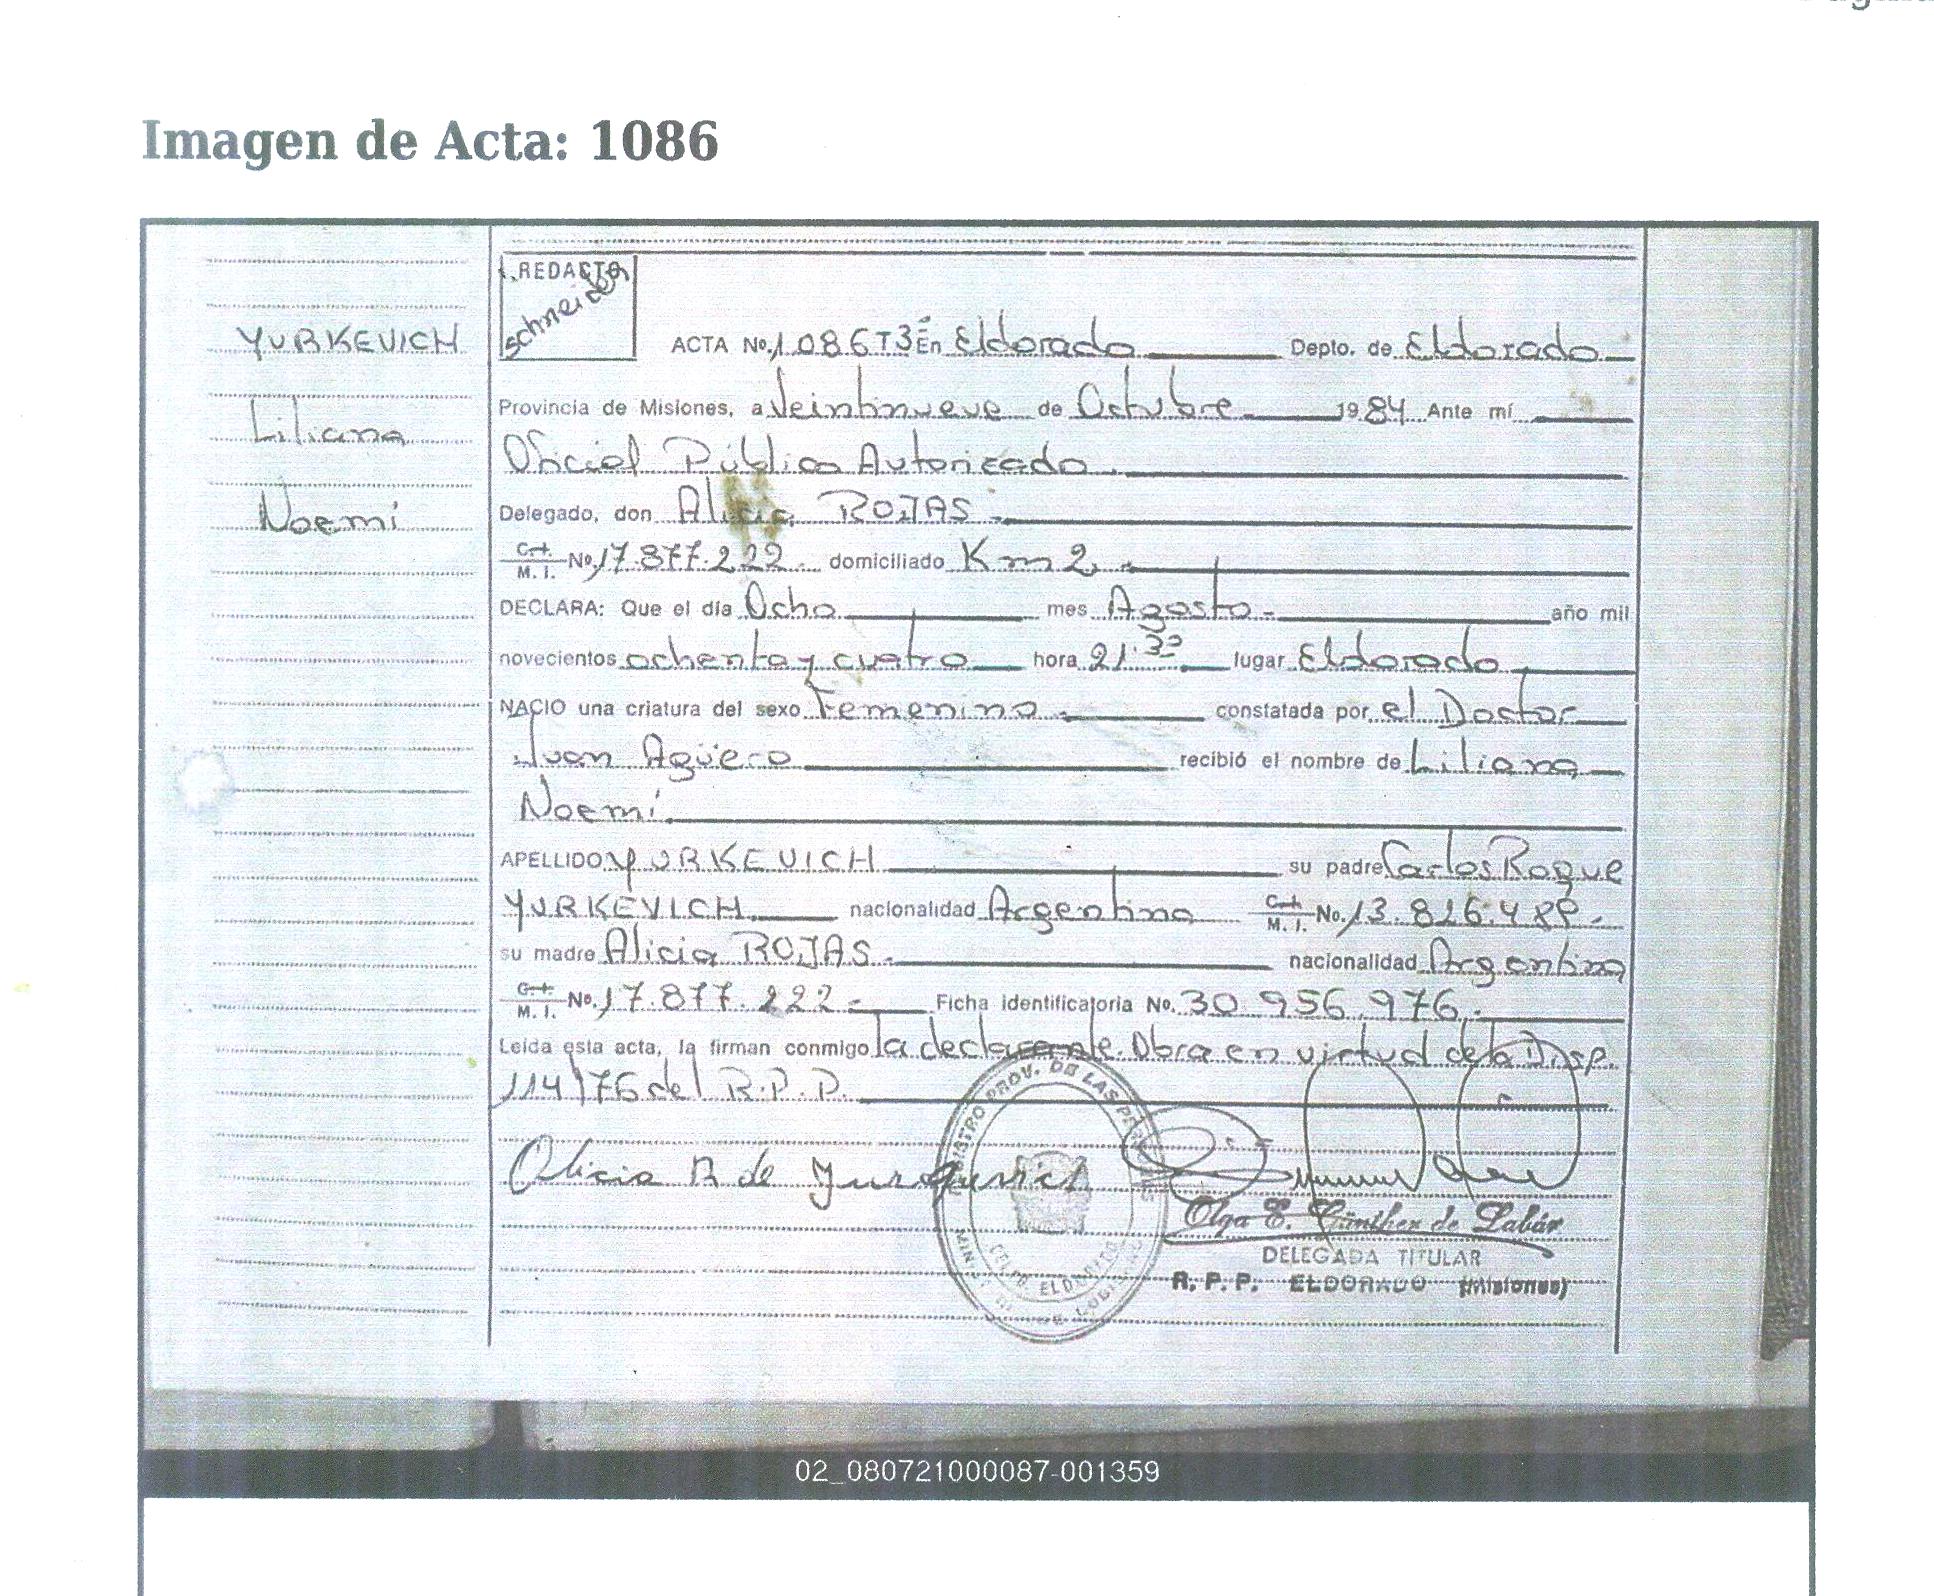 Imagen de Acta: 1086
REDACTO
Schneider
YURKEVICH
Liliana
Noemí
ACTA No. 1086 T3º En Eldorado Depto. de Eldorado
Provincia de Misiones, a Veintinueve de Octubre 1984 Ante mí
Oficial Público Autorizado.
Delegado, don Alicia ROJAS.
C.I. M. I. No. 17.877.222. domiciliado Km 2.
DECLARA: Que el día Ocho mes Agosto. año mil
novecientos ochenta y cuatro hora 21.30 lugar Eldorado
NACIO una criatura del sexo Femenino. constatada por el Doctor
Juan Agüero recibió el nombre de Liliana
Noemí.
APELLIDO YURKEVICH su padre Carlos Roque
YURKEVICH nacionalidad Argentina C.I. M. I. No. 13.826.489.
su madre Alicia ROJAS. nacionalidad Argentina
C.I. M. I. No. 17.877.222. Ficha identificatoria No. 30.956.976.
Leída esta acta, la firman conmigo la declarante. Obra en virtud de la Disp.
114/76 del R.P.P.
Alicia R de
REGISTRO PROV. DE LAS PERSONAS
ELDORADO
Olga E. Günther de Labár
DELEGADA TITULAR
R. P. P. ELDORADO (Misiones)
02_080721000087-001359